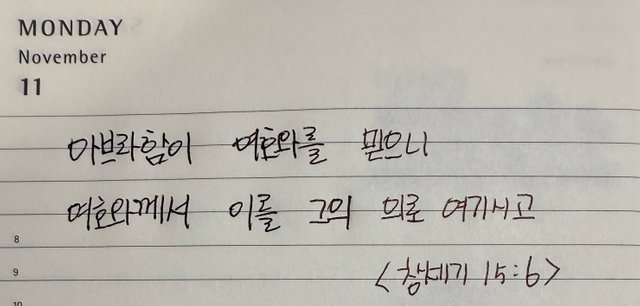 MONDAY
November
11
아브라함이 여호와를 믿으니
여호와께서 이를 그의 의로 여기시고
8
9 <창세기 15:6>
10